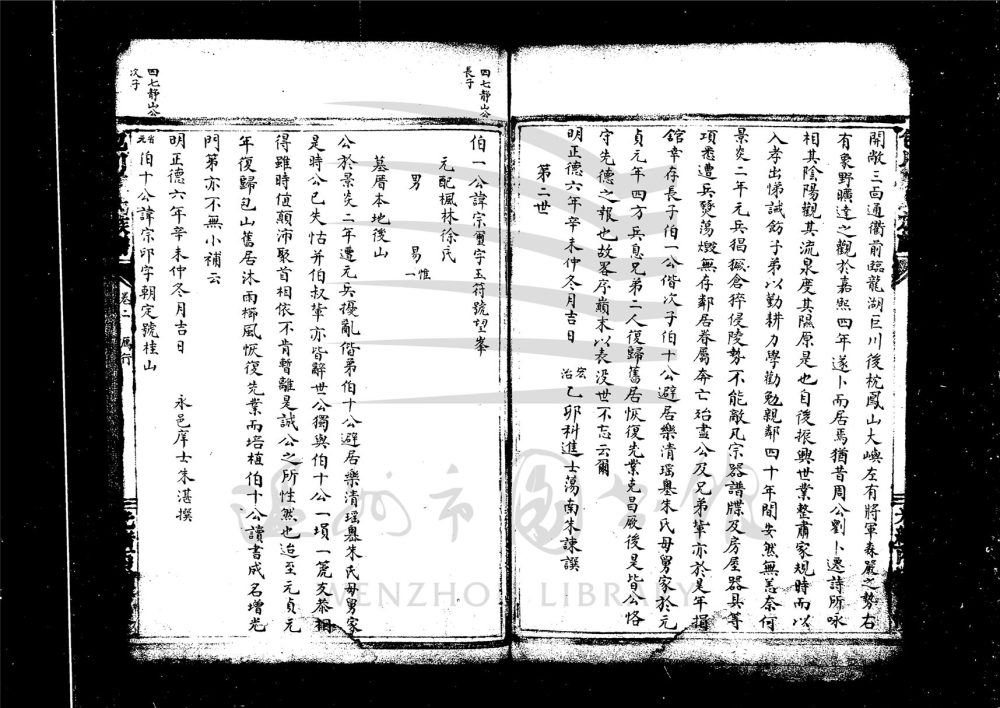 開敞三面通衢前臨龍湖巨川後枕鳳山大嶼左有將軍森嚴之勢右
有象野曠達之觀於嘉熙四年遂卜而居焉猶昔周公劉卜遷詩所咏
相其陰陽觀其流泉度其隰原是也自後振興世業整肅家規時而以
入孝出悌誠飭子弟以勤耕力學勸勉親鄰四十年間安然無恙奈何
景炎二年元兵猖獗倉猝侵陵勢不能敵凡宗器譜牒及房屋器具等
項悉遭兵燹蕩燬無存鄰居眷屬奔亡殆盡公及兄弟輩亦於是年捐
舘幸存長子伯一公偕次子伯十公避居樂清瑶嶴朱氏母舅家於元
貞元年四方兵息兄弟二人復歸舊居恢復先業克昌厥後是皆公恪
守先德之報也故畧序巔末以表没世不忘云爾
明正德六年辛未仲冬月吉日 宏治乙卯科進士蕩南朱諫譔
第二世
四七靜山公長子
伯一公諱宗璽字玉符號望峯
元配楓林徐氏
男 易 惟一
墓厝本地後山
公於景炎二年遭元兵擾亂偕弟伯十公避居樂清瑶嶴朱氏母舅家
是時公已失怙并伯叔輩亦皆辭世公獨與伯十公一塤一箎友恭相
得雖時值顛沛聚首相依不肯暫離是誠公之所性然也迨至元貞元
年復歸包山舊居沐雨櫛風恢復先業而培植伯十公讀書成名增光
門第亦不無小補云
明正德六年辛未仲冬月吉日 永邑庠士朱湛撰
四七靜山公次子
伯十公諱宗印字朝定號桂山
卷二 馬行
溫州市圖書館
WENZHOU LIBRARY